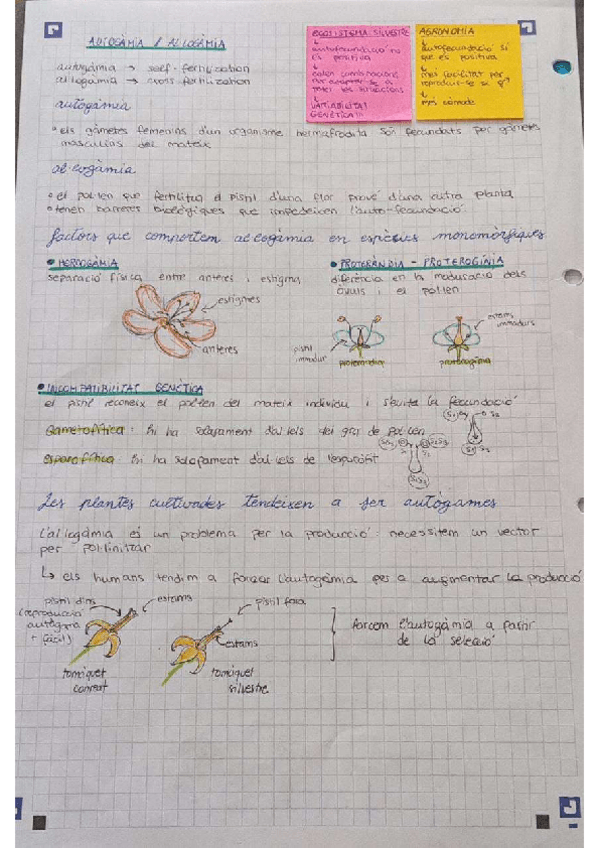 AUTOGÀMIA / AL·LOGÀMIA
autogàmia → self-fertilization
al·logàmia → cross-fertilization
ECOSISTEMA SILVESTRE
↓
autofecundació no
és positiva
↓
calen combinacions
per adaptar-se a
totes les situacions
↓
VARIABILITAT
GENÈTICA!!!
AGRONOMIA
↓
autofecundació sí
que és positiva
↓
més facilitat per
reproduir-se si
↓
més còmode
autogàmia
• els gàmetes femenins d'un organisme hermafrodita són fecundats per gàmetes
masculins del mateix
al·logàmia
• el pol·len que fertilitza el pistil d'una flor prové d'una altra planta
• tenen barreres biològiques que impedeixen l'auto-fecundació
factors que comporten al·logàmia en espècies monomòrfiques
• HERCOGÀMIA
separació física entre anteres i estigma
estigmes
anteres
• PROTERÀNDIA - PROTEROGÍNIA
diferència en la maduració dels
òvuls i el pol·len
pistil
immadur
proterandria
estams
immadurs
proterogínia
• INCOMPATIBILITAT GENÈTICA
el pistil reconeix el pol·len del mateix individu i s'evita la fecundació
Gametofítica: hi ha solapament d'al·lels del gra de pol·len
Esporofítica: hi ha solapament d'al·lels de l'esporòfit
Les plantes cultivades tendeixen a ser autògames
L'al·logàmia és un problema per la producció: necessitem un vector
per pol·linitzar
↳ els humans tendim a forçar l'autogàmia per a augmentar la producció
pistil dins
(reproducció
autògama
+ fàcil)
estams
tomàquet
conreat
pistil fora
estams
tomàquet
silvestre
forcem l'autogàmia a partir
de la selecció